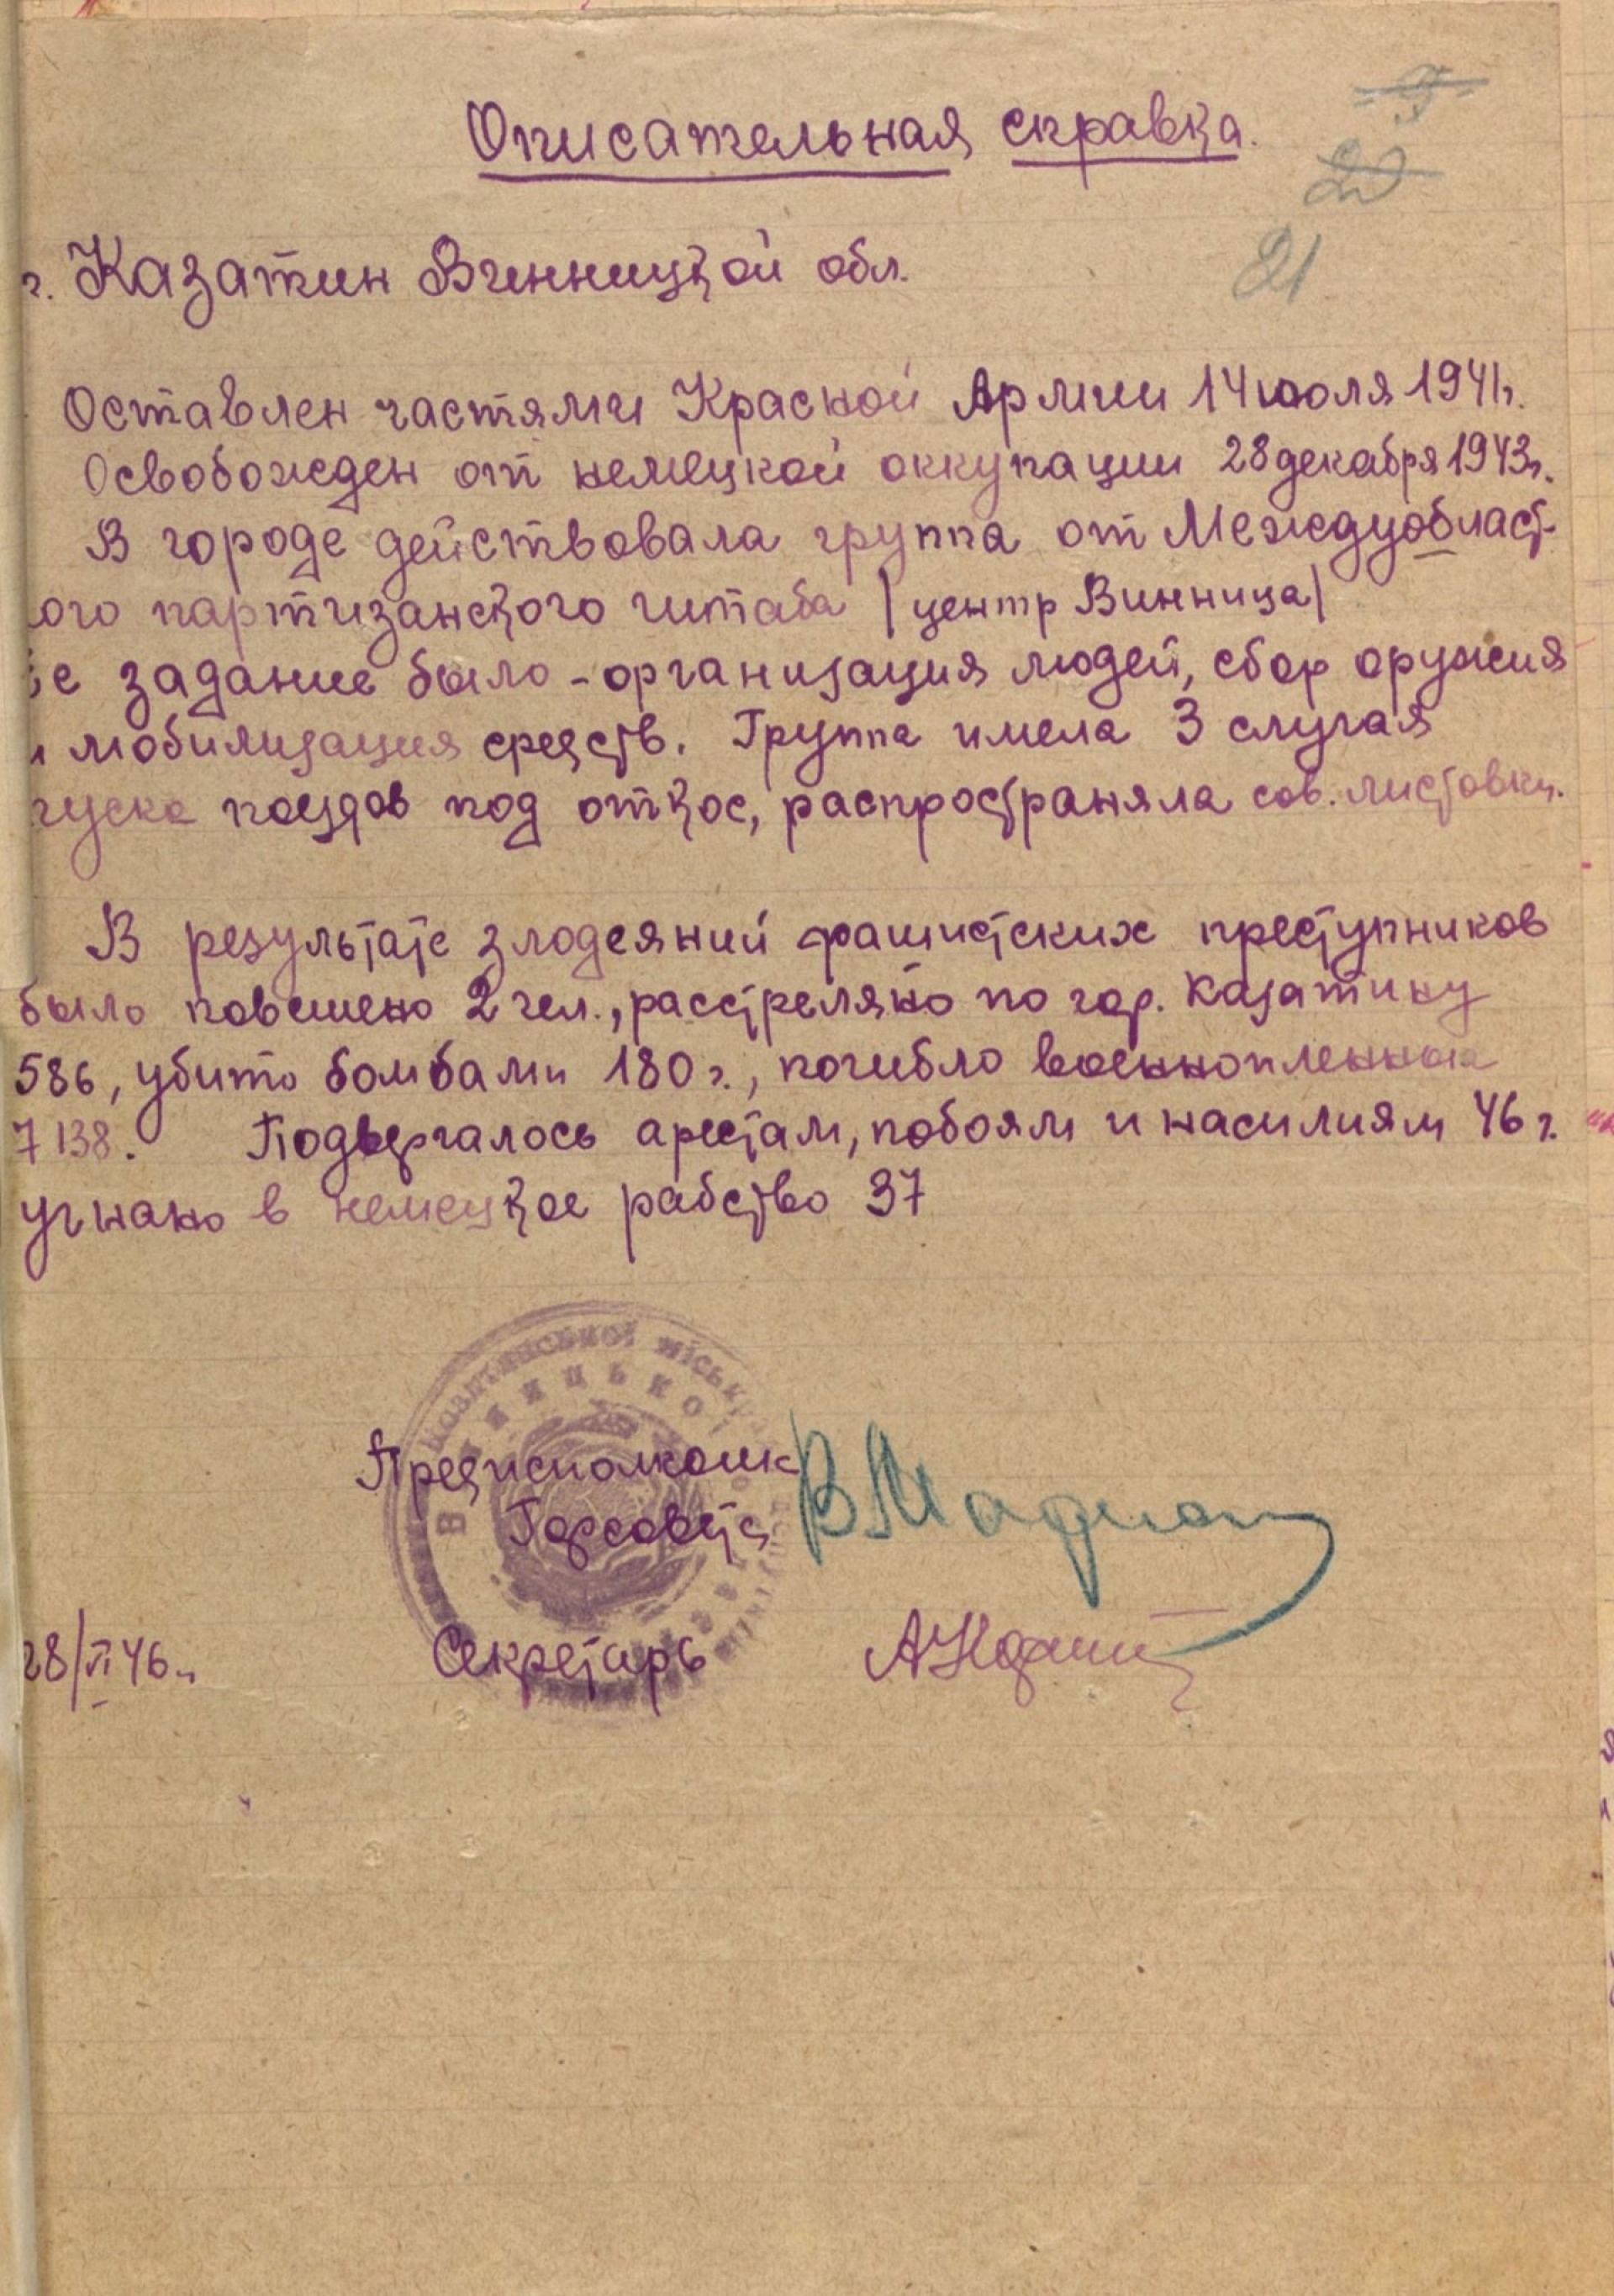 Описательная справка.
21
г. Казатин Винницкой обл.
Оставлен частями Красной Армии 14 июля 1941г.
Освобожден от немецкой оккупации 28 декабря 1943г.
В городе действовала группа от Междуобласт-
ого партизанского штаба /центр Винница/
ее задание было - организация людей, сбор оружия
и мобилизация средств. Группа имела 3 случая
пуска поездов под откос, распространяла сов. листовки.
В результате злодеяний фашистских преступников
было повешено 2 чел., расстреляно по гор. Казатину
586, убито бомбами 180 ч., погибло военнопленных
7138. Подвергалось арестам, побоям и насилиям 46 ч.
угнано в немецкое рабство 37
Козятинської міської
Вінницької
Предисполкома
Горсовета
28/VI 46г.
Секретарь